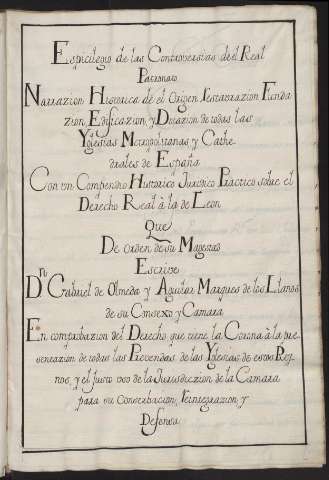 Espicilegio de las Controversias de el Real
Patronato
Narrazion Historica de el Origen Restavrazion Funda
zion Edificazion, y Dotazion de todas las
Yglesias Metropolitanas y Cathe
drales de España
Con vn Compendio Historico Juridico Practico sobre el
Derecho Real à la de Leon
Que
De Orden de su Magestad
Escrive
Dn Gabriel de Olmeda y Aguilar Marques de los Llanos
de su Consexo y Camara
En comprobazion del Derecho que tiene la Corona à la pre
sentazion de todas las Prevendas de las Yglesias de estos Rey
nos, y el Justo vso de la Jurisdiczion de la Camara
para su Conserbacion, Reintegrazion y
Defensa